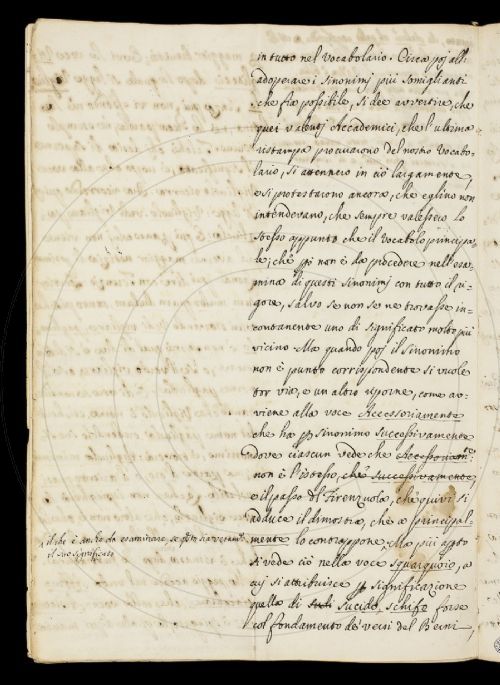 in tutto nel Vocabolario. Circa poj all'
adoperare i Sinonimj più somiglianti
che sia possibile, si dee avvertire, che
quei valentj Accademici, che l'ultima
ristampa procurarono del nostro Vocabo-
lario, si attennero in ciò largamente,
e si protestarono ancora, che eglino non
intendevano, che sempre valessero lo
stesso appunto che il vocabolo principa
le; che non è da procedere nell'esa-
mina di questi sinonimj con tutto il ri-
gore, salvo se non se ne trovasse in-
contanente uno di significato molto più
vicino. Ma quando poj il sinonimo
non è punto corrispondente si vuole
tor via, e un altro riporne, come av-
viene alla voce Accessoriamente
che ha sinonimo Successivamente
dove ciascun vede che Accessoriam.te
non è l'istesso, che Successivamente
e il passo del Firenzuola, che quivi si
adduce il dimostra, che a principal-
mente lo contrappone. Ma più aperto
il che è anche da esaminare, se
il suo significato
si vede ciò nella voce Squarquoio, a
cuj si attribuisce significazione
quella di Sucido, schifo forse
col fondamento de' versi del Berni,